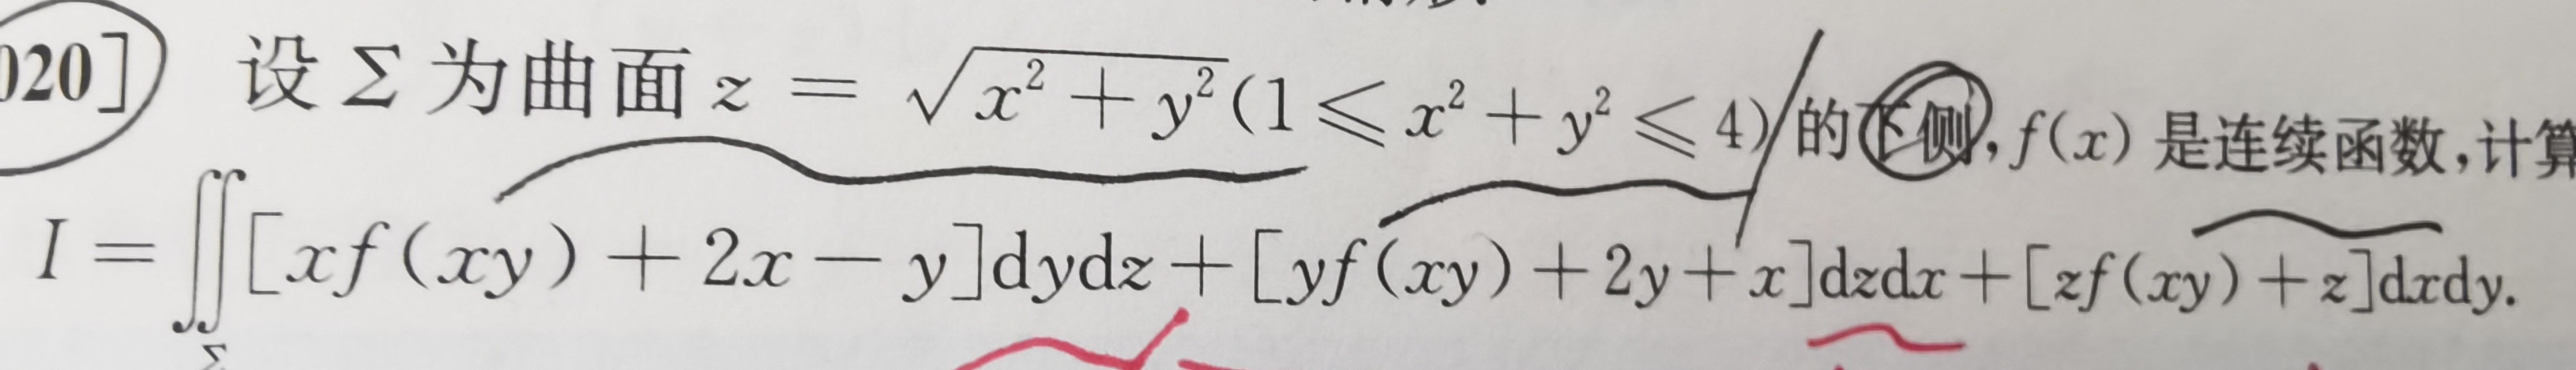 020] 设 Σ 为曲面 z = √(x² + y²) (1 ⩽ x² + y² ⩽ 4) 的下侧, f(x) 是连续函数, 计算
I = ∬_Σ [xf(xy) + 2x − y]dydz + [yf(xy) + 2y + x]dzdx + [zf(xy) + z]dxdy.